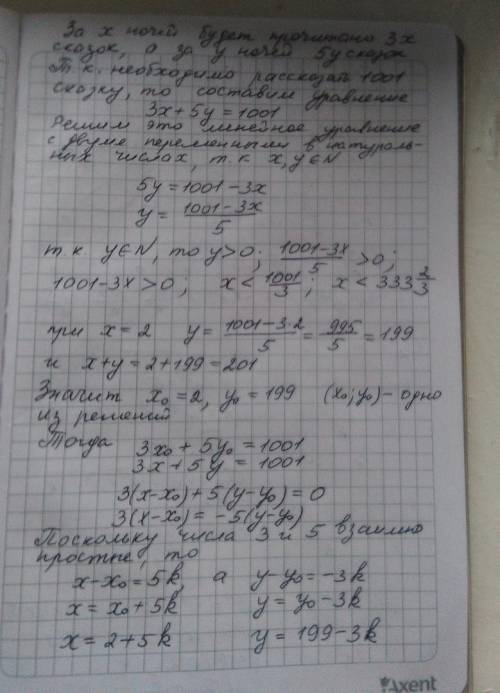 За x ночей будет прочитано 3x
сказок, а за y ночей 5y сказок
Т.к. необходимо рассказать 1001
сказку, то составим уравнение
3x+5y=1001
Решим это линейное уравнение
с двумя переменными в натураль-
ных числах, т.к x,y∈N
5y=1001-3x
y= (1001-3x)/5
т.к. y∈N, то y>0; (1001-3x)/5 >0;
1001-3x>0; x< 1001/3; x<333 2/3
при x=2 y= (1001-3·2)/5 = 995/5 =199
и x+y=2+199=201
Значит x₀=2, y₀=199 (x₀;y₀)-одно
из решений
Тогда 3x₀+5y₀=1001
3x+5y=1001
3(x-x₀)+5(y-y₀)=0
3(x-x₀)=-5(y-y₀)
Поскольку числа 3 и 5 взаимно
простые, то
x-x₀=5k, а y-y₀=-3k
x=x₀+5k y=y₀-3k
x=2+5k y=199-3k
Axent